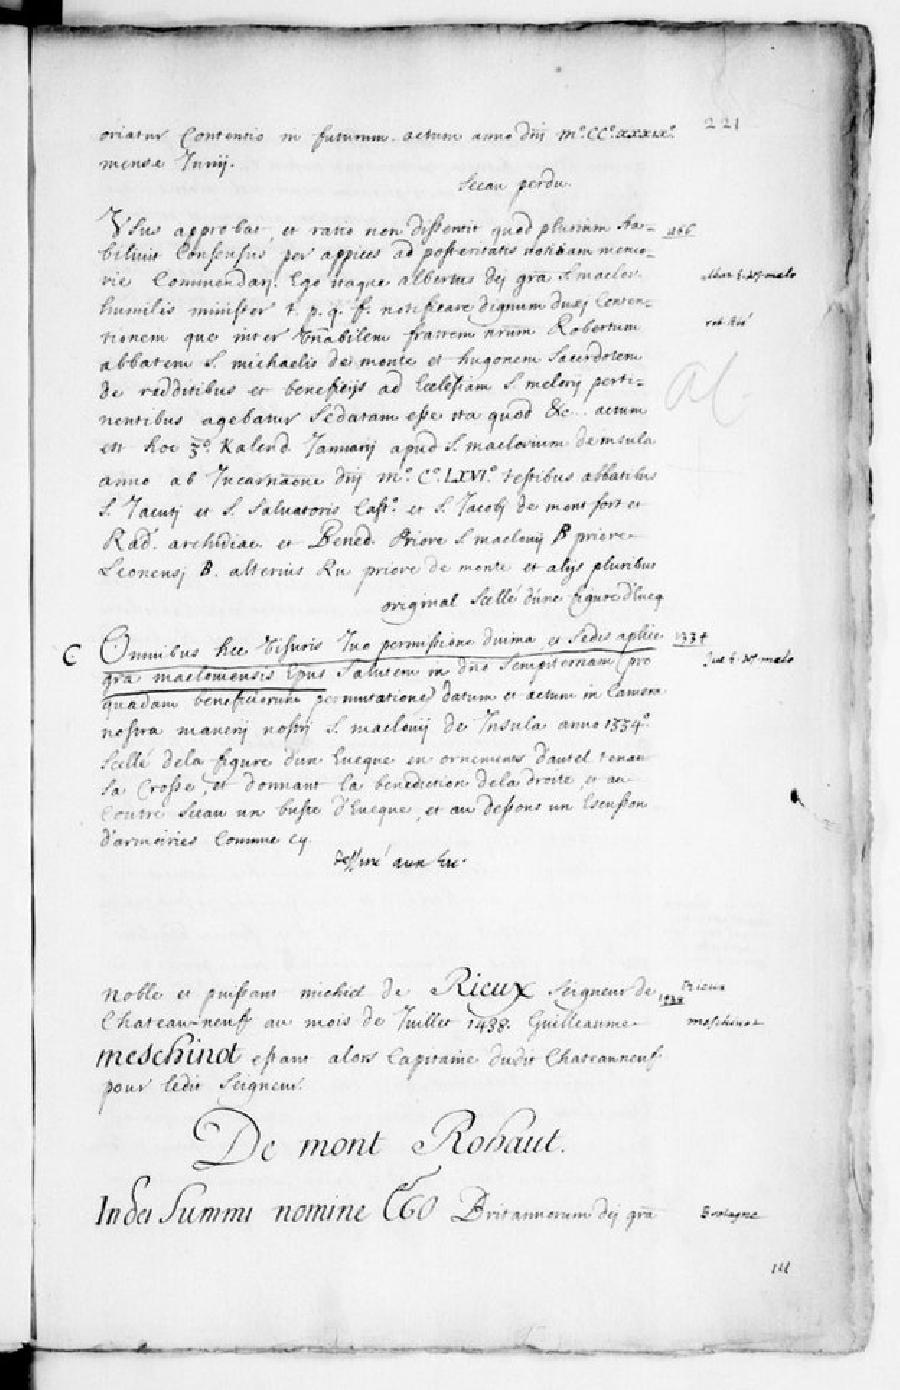 221
oriatur Contentio in futurum. actum anno dnj m.º CCº.xxxixº.
mense Junij.
Sceau perdu.
Usus approbat, et ratio non dissentit quod plurium sta-
bilivit Consensus per appices ad posteritatis notitiam memo-
rie Commendarj. Ego itaque albertus dej gra S. maclov.
humilis minister t. p. q. f. notificare dignum duxj Conten-
tionem que inter venãbilem fratrem nrum Robertum
abbatem S. michaelis de monte et hugonem Sacerdotem
de redditibus et beneficijs ad Ecclesiam S. melorij perti-
nentibus agebatur Sedatam esse ita quod &c... actum
est hoc 3º. Kalend. Januarij apud S. maclovium de insula
anno ab Incarnãone dnj mº. Cº. LXVIº. testibus abbatibus
S. Jacutj et S. Salvatoris Cast.º et S. Jacobj de montfort et
Rad. archidiac. et Bened. Priore S. maclovij B priore
Leonensj B. alterius Ru priore de monte et alijs pluribus
original Scellé d'une figure d'Eveq
C Omnibus hec visuris Ivo permissione divina et Sedis aplice 1334
gra macloviensis Epus Salutem in dno Sempiternam (pro
quadam beneficiorum permutatione) datum et actum in Camera
nostra manerij nostrj S. maclovij de Insula anno 1334º
Scellé dela figure d'un Eveque en ornements d'autel tenant
Sa Crosse, et donnant la benediction dela droite, et au
Contre Sceau un buste d'Eveque, et au dessous un Escusson
d'armoiries Comme cy
Noble et puissant michel de Rieux Seigneur de Rieux
Chateau-neuf au mois de Juillet 1438. Guilleaume 1438 meschinot
meschinot estant alors Capitaine dudit Chateauneuf
pour ledit Seigneur.
De mont Rohaut.
In dei Summi nomine Ego Britannorum dej gra Bretagne